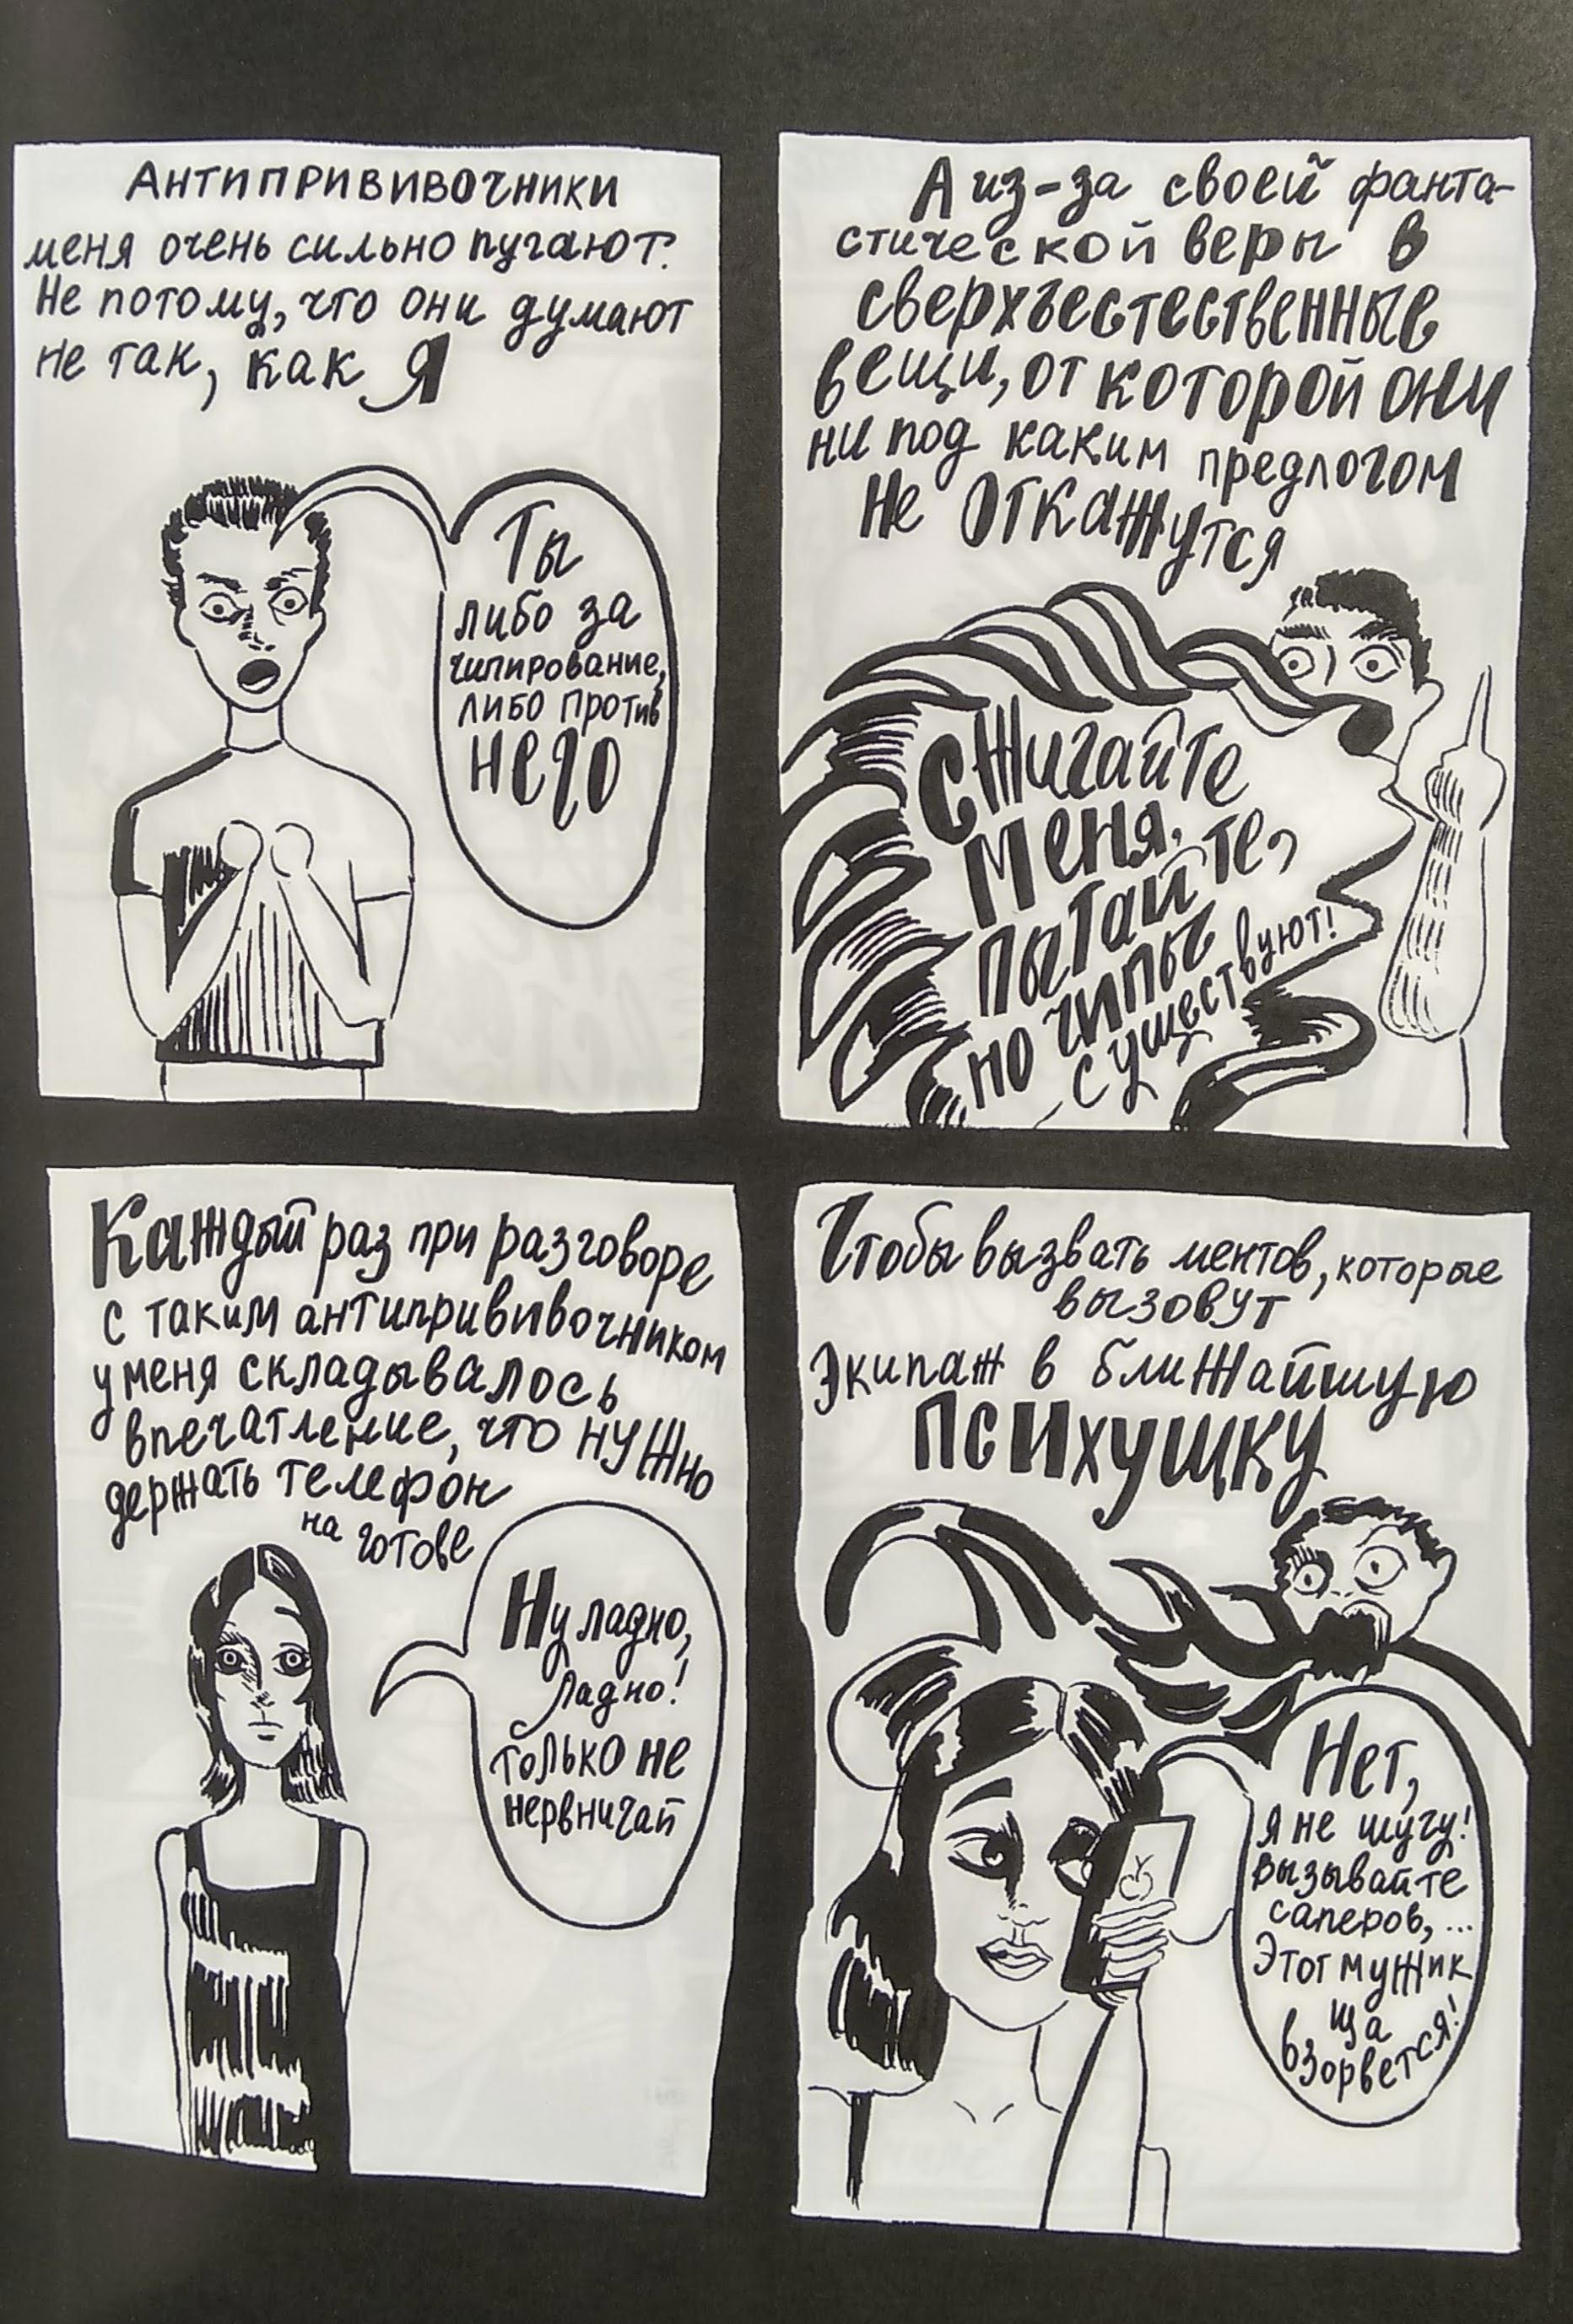 Антипрививочники
меня очень сильно пугают.
Не потому, что они думают
не так, как Я
Ты
либо за
чипирование,
либо против
него
А из-за своей фанта-
стической веры в
сверхъестественные
вещи, от которой они
ни под каким предлогом
не откажутся
Сжигайте
меня,
пытайте,
но чипы
существуют!
Каждый раз при разговоре
с таким антипрививочником
у меня складывалось
впечатление, что нужно
держать телефон
на готове
Ну ладно,
ладно!
только не
нервничай
Чтобы вызвать ментов, которые
вызовут
экипаж в ближайшую
психушку
Нет,
я не шучу!
Вызывайте
саперов, ...
Этот мужик
ща
взорвется!